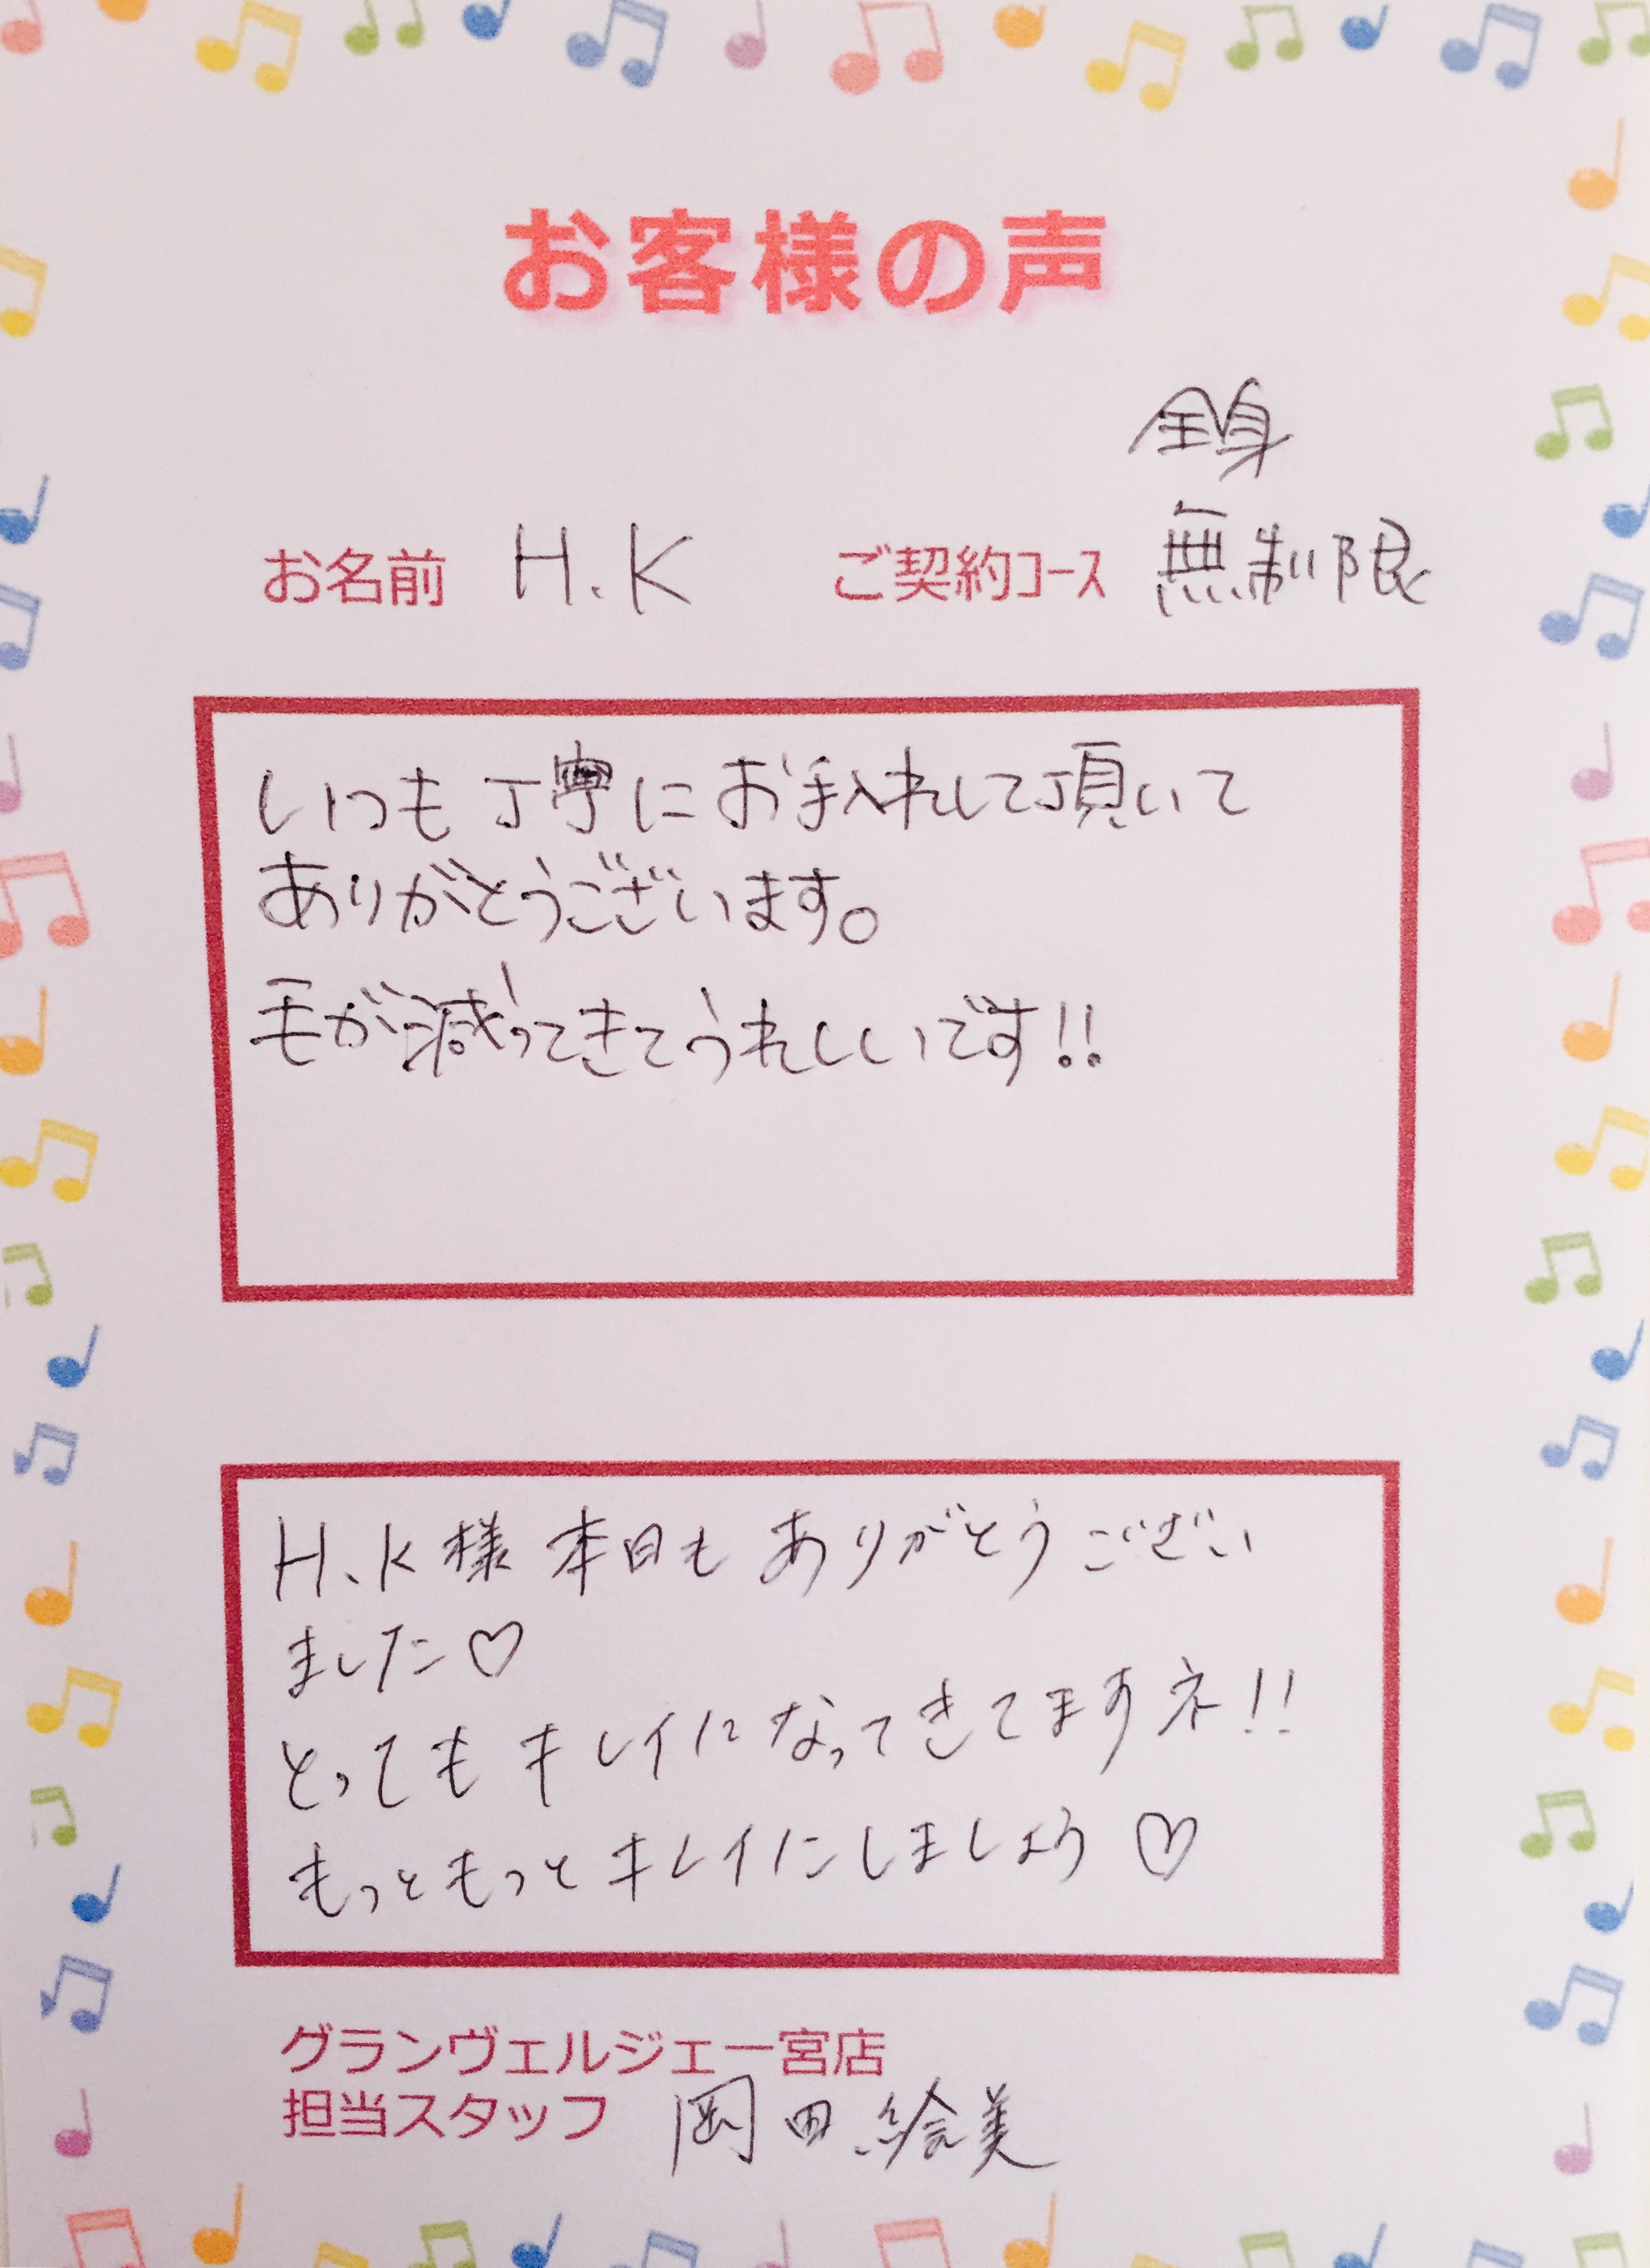 お客様の声
全身
お名前 H.K ご契約コース 無制限
いつも丁寧にお手入れして頂いて
ありがとうございます。
毛が減ってきてうれしいです!!
H.K様 本日も ありがとうござい
ました♡
とってもキレイになってきてますネ!!
もっともっとキレイにしましょう♡
グランヴェルジェ一宮店
担当スタッフ 岡田 絵美